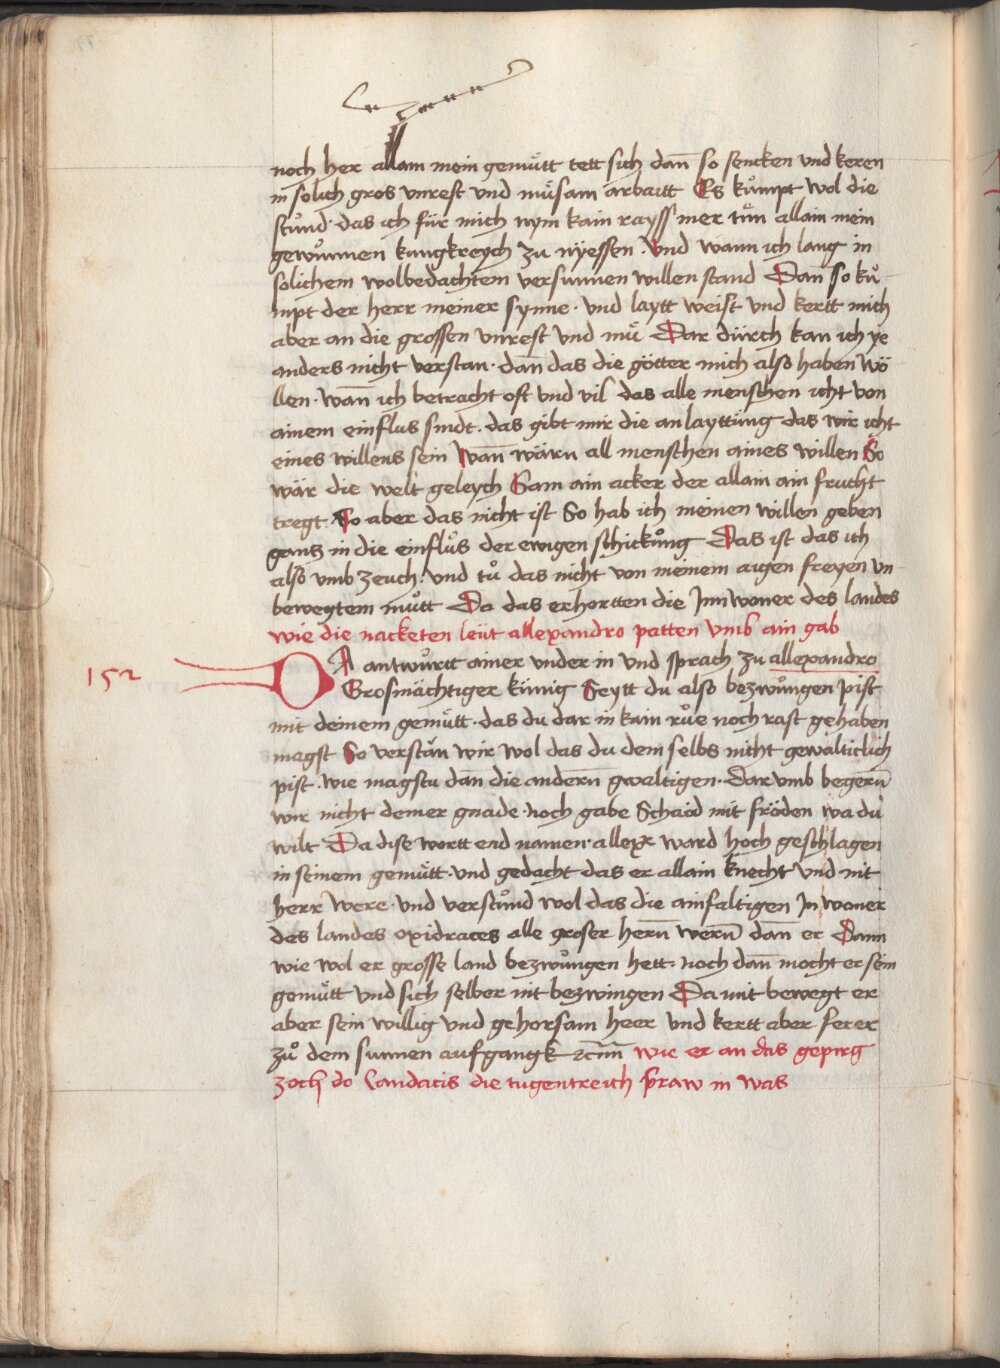 noch her allam mein gemütt tett sich dan̄ so sencken vnd keren
in solich gros vnrest vnd müsam arbaitt Es kumpt wol die
stůnd das ich für mich nym kain rayss mer tün allain mein
gewůnnen kungkreych zu nyessen · Vnd wann ich lang in
solichem wolbedachtem versunnen willen stand Dan so ků-
mpt der herr meiner synne · vnd laytt weist vnd kertt mich
aber an die grossen vnrest vnd mü Dar dürch kan ich ye
anders nicht verstan · dan̄ das die götter mich also haben wö
llen · wan̄ ich betracht oft vnd vil das alle menschen icht von
ainem einflus sindt · das gibt mir die anlayttüng das wir icht
eines willens sein Wan̄ wärn all menschen aines willen So
wär die welt geleych Sam ain acker der allain ain frucht
tregt So aber das nicht ist So hab ich meinen willen geben
gans in die einflůs der ewigen schickůng Das ist das ich
also vmb zeuch · vnd tů das nicht von meinem aigen freyen vn-
bewegtem můtt Da das erhortten die Jnnwoner des landes
wie die nacketen leüt allexandro patten vmb ain gab
152
DA antwůrtt ainer vnder in vnd sprach zu allexandro
Grosmächtiger künig Seytt du also bezwůngen pist
mit deinem gemütt · das du dar in kain růe noch rast gehaben
magst So verstän wir wol das du dem selbs nicht gewalticlich
pist · wie magstu dan̄ die andern̄ gwaltigen · dar vmb begern̄
wir nicht deiner gnade · noch gabe Schaid mit fröden wa du
wilt Da dise wortt end namen · allexr ward hoch geschlagen
in seinem gemütt · vnd gedacht das er allain knecht vnd nit
herr were · vnd verstůnd wol das die ainfaltigen Jn woner
des landes oxidraces alle groser hern̄ wern̄ dan̄ er Dann
wie wol er grosse land bezwůngen hett · noch dan̄ mocht er sein
gemütt vnd sich selber nit bezwingen Da mit bewegt er
aber sein willig vnd gehorsam heer vnd kertt aber ferer
zů dem sunnen aufgangk wie er an das gepirg
zoch do Candacis die tugentreich fraw in was